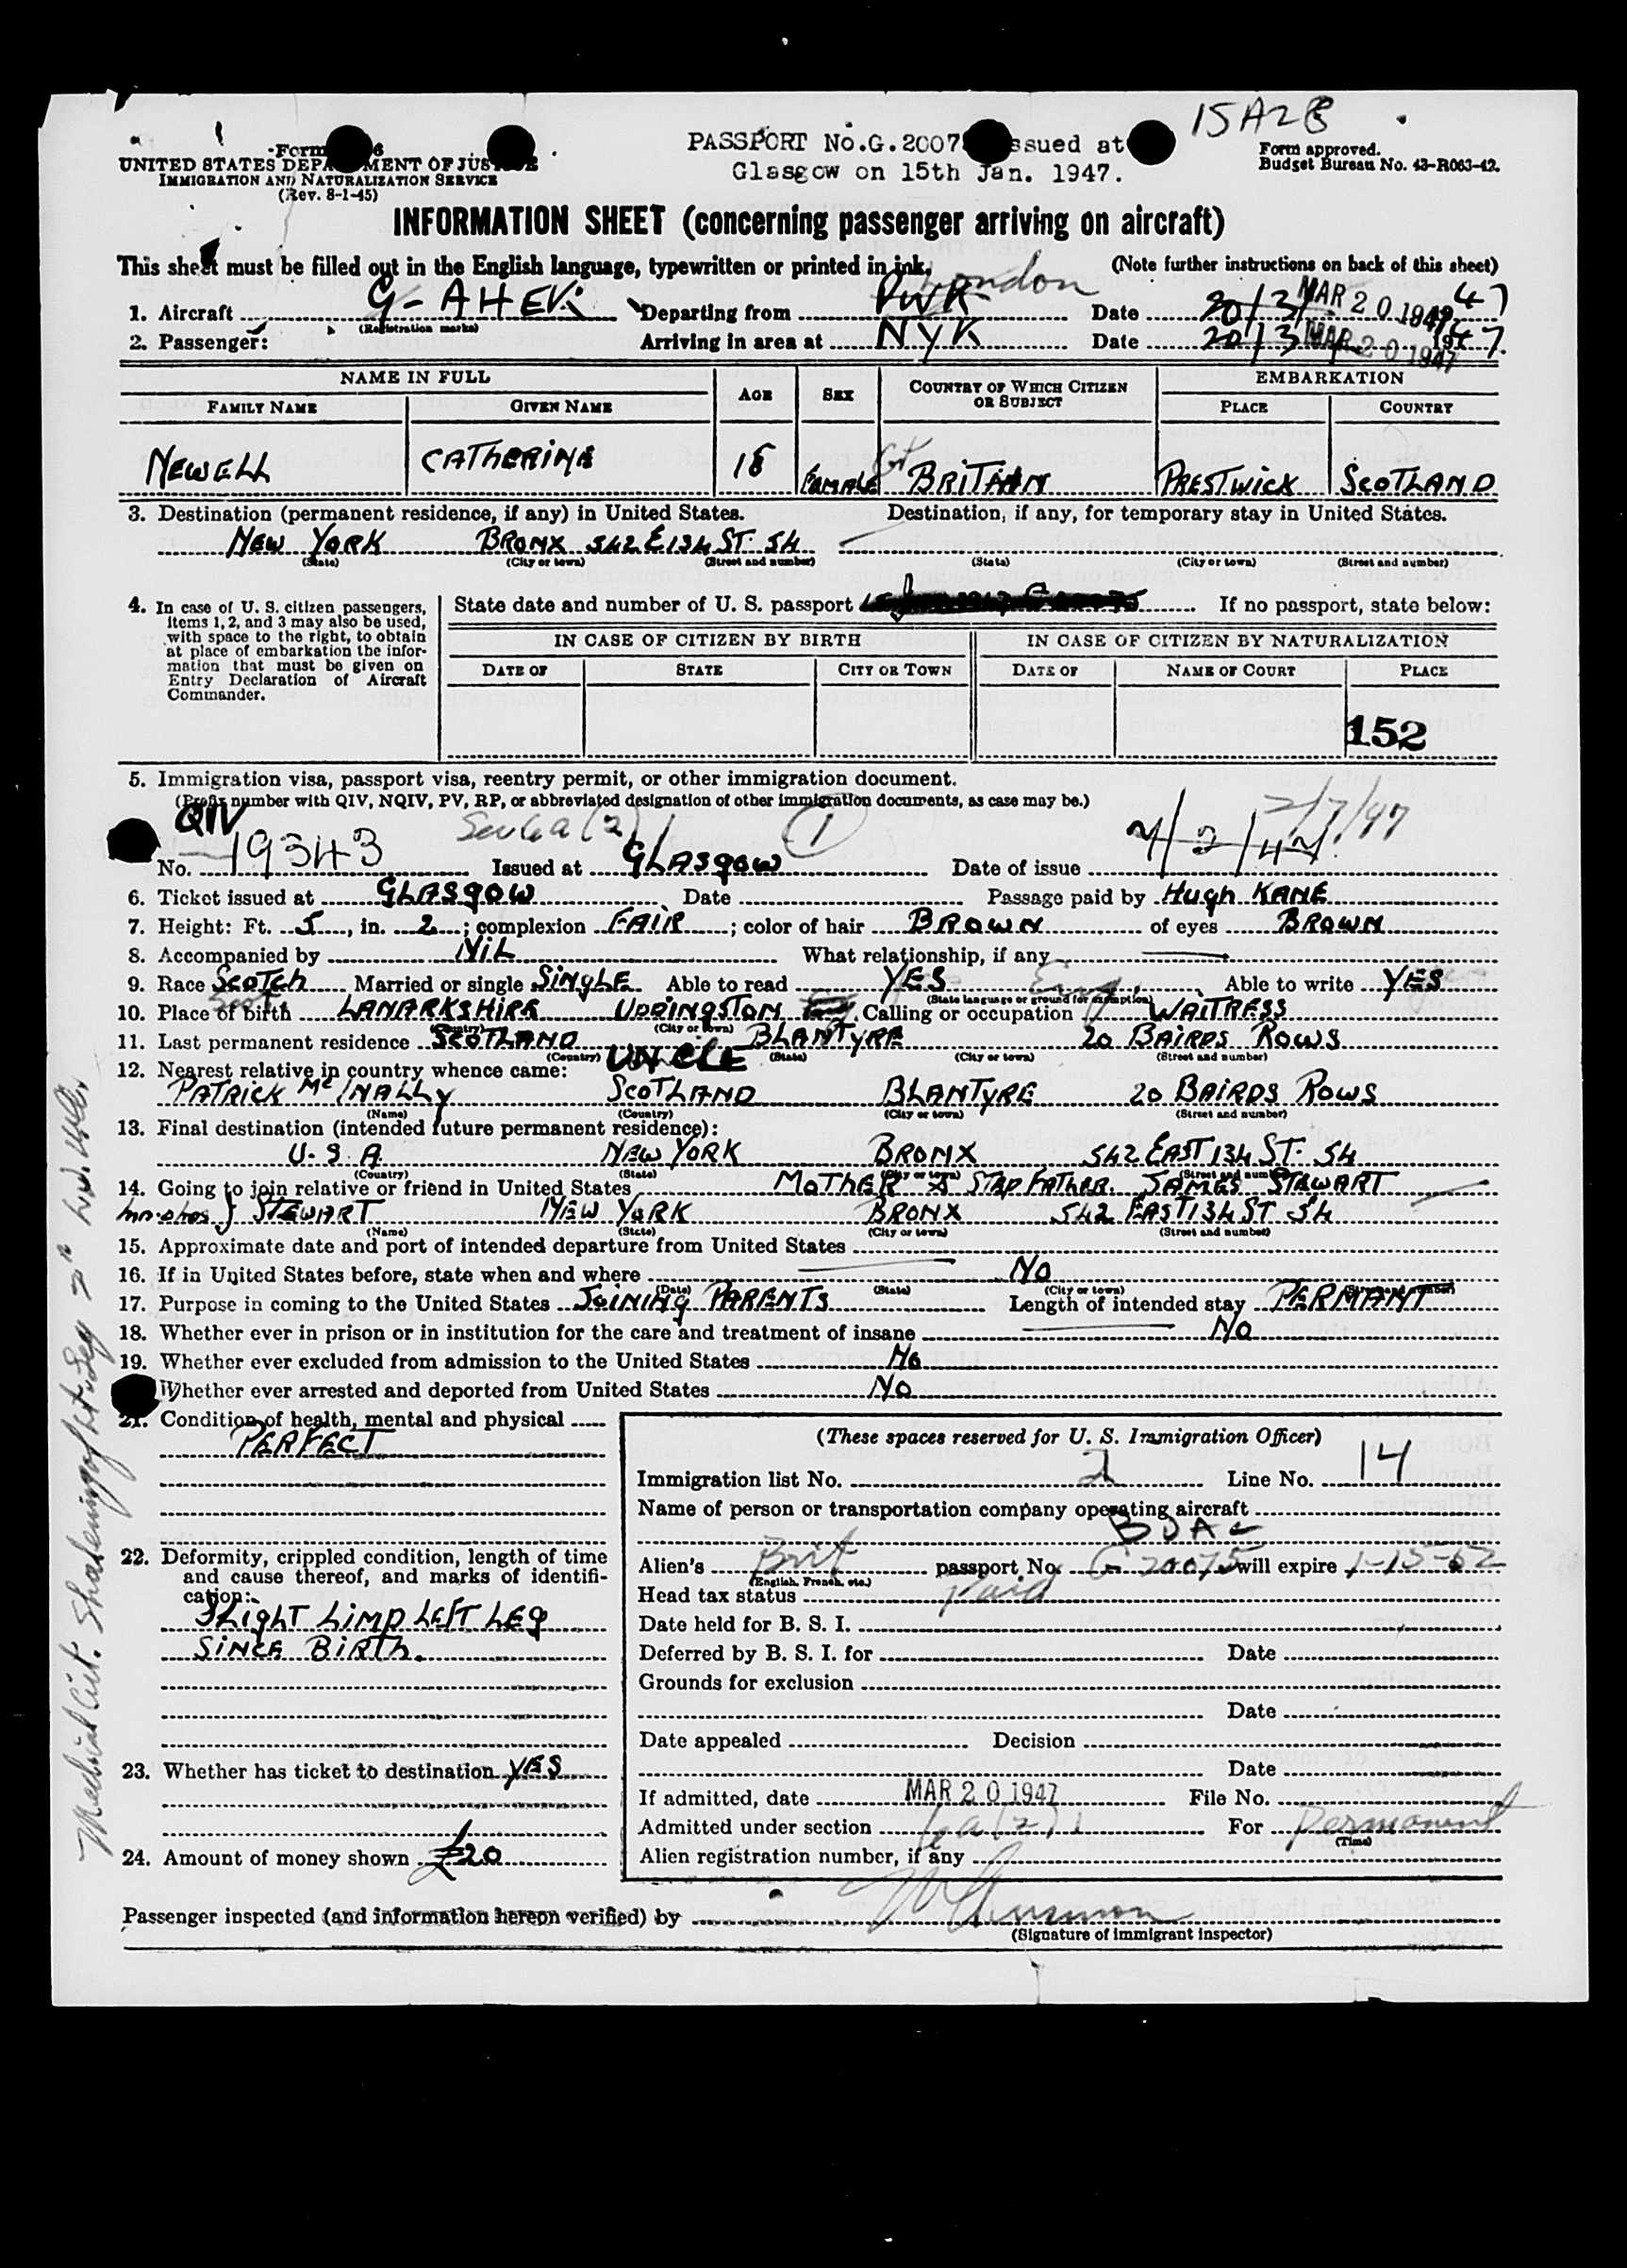 15A2B
PASSPORT No.G.2007 ssued at
Glasgow on 15th Jan. 1947.
Form 6
UNITED STATES DEPA MENT OF JUS E
IMMIGRATION AND NATURALIZATION SERVICE
(Rev. 8-1-45)
Form approved.
Budget Bureau No. 43-R063-42.
INFORMATION SHEET (concerning passenger arriving on aircraft)
This sheet must be filled out in the English language, typewritten or printed in ink. (Note further instructions on back of this sheet)
London
1. Aircraft G-AHEK Departing from PWK Date 20/3/ MAR 20 1947 47
(Registration marks)
2. Passenger: Arriving in area at NYK Date 20/3/ MAR 20 1947 1947.
NAME IN FULL AGE SEX COUNTRY OF WHICH CITIZEN OR SUBJECT EMBARKATION
FAMILY NAME GIVEN NAME PLACE COUNTRY
NEWELL CATHERINE 18 FEMALE Gt BRITAIN PRESTWICK SCOTLAND
3. Destination (permanent residence, if any) in United States. Destination, if any, for temporary stay in United States.
NEW YORK BRONX 542 E 134 ST. 54
(State) (City or town) (Street and number) (State) (City or town) (Street and number)
4. In case of U. S. citizen passengers, items 1, 2, and 3 may also be used, with space to the right, to obtain at place of embarkation the information that must be given on Entry Declaration of Aircraft Commander.
State date and number of U. S. passport If no passport, state below:
IN CASE OF CITIZEN BY BIRTH IN CASE OF CITIZEN BY NATURALIZATION
DATE OF STATE CITY OR TOWN DATE OF NAME OF COURT PLACE
152
5. Immigration visa, passport visa, reentry permit, or other immigration document.
(Prefix number with QIV, NQIV, PV, RP, or abbreviated designation of other immigration documents, as case may be.)
QIV 6a(2) 1 2/7/47
No. 19343 Issued at GLASGOW Date of issue
6. Ticket issued at GLASGOW Date Passage paid by Hugh KANE
7. Height: Ft. 5, in. 2; complexion FAIR; color of hair BROWN of eyes BROWN
8. Accompanied by NIL What relationship, if any
9. Race SCOTCH Married or single SINGLE Able to read YES Eng. Able to write YES
(State language or ground for exemption)
10. Place of birth LANARKSHIRE UDDINGSTON Calling or occupation WAITRESS
(Country) (City or town)
11. Last permanent residence SCOTLAND BLANTYRE 20 BAIRDS ROWS
(Country) (State) (City or town) (Street and number)
12. Nearest relative in country whence came: UNCLE
PATRICK McINALLY SCOTLAND BLANTYRE 20 BAIRDS ROWS
(Name) (Country) (City or town) (Street and number)
13. Final destination (intended future permanent residence):
U.S.A. NEW YORK BRONX 542 EAST 134 ST. 54
(Country) (State) (City or town) (Street and number)
14. Going to join relative or friend in United States MOTHER & STEP FATHER. JAMES STEWART
STEWART NEW YORK BRONX 542 EAST 134 ST 54
(Name) (State) (City or town) (Street and number)
15. Approximate date and port of intended departure from United States
16. If in United States before, state when and where NO
(Date) (State) (City or town) (Street and number)
17. Purpose in coming to the United States JOINING PARENTS Length of intended stay PERMANT
18. Whether ever in prison or in institution for the care and treatment of insane NO
19. Whether ever excluded from admission to the United States NO
Whether ever arrested and deported from United States NO
21. Condition of health, mental and physical
PERFECT
22. Deformity, crippled condition, length of time and cause thereof, and marks of identification:
SLIGHT LIMP LEFT LEG
SINCE BIRTH.
23. Whether has ticket to destination YES
24. Amount of money shown £20
(These spaces reserved for U. S. Immigration Officer)
Immigration list No. 2 Line No. 14
Name of person or transportation company operating aircraft
BOAC
Alien's Brit passport No. G 20075 will expire 1-15-52
(English, French, etc.)
Head tax status Paid
Date held for B. S. I.
Deferred by B. S. I. for Date
Grounds for exclusion
Date
Date appealed Decision
Date
If admitted, date MAR 20 1947 File No.
Admitted under section 6a(2)1 For Permanent
(Time)
Alien registration number, if any
Passenger inspected (and information hereon verified) by
(Signature of immigrant inspector)
Medical Cert. Shortening of left leg 2"